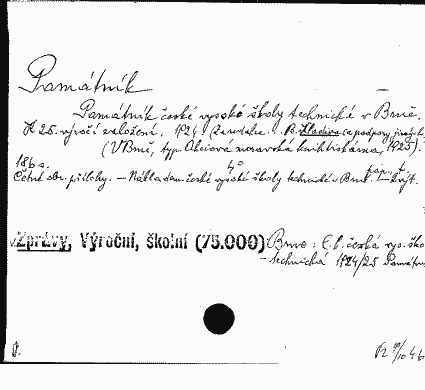 Památník
Památník české vysoké školy technické v Brně.
K 25. výročí založení. 1924 (Za redakce B. Hladíka za podpory
(V Brně, typ. Akciová moravská knihtiskárna, 1925).
186 s. 4°
Četné obr. přílohy. – Nákladem české vysoké školy technické v Brně
v.Zprávy, Výroční, školní (75.000) Brno: C.k. česká vys. ško
– technická 1924/25 Památní